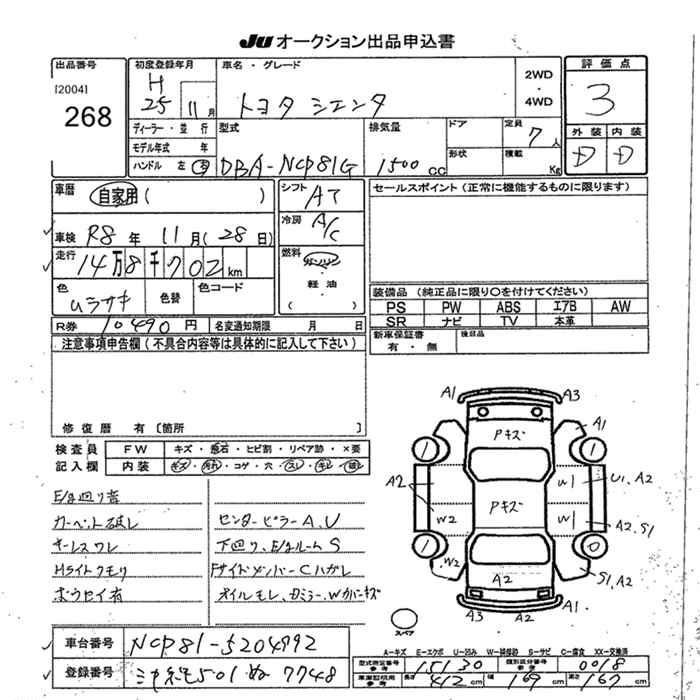 JU オークション出品申込書
出品番号
[2004]
268
初度登録年月
H
25 11月
車名・グレード
トヨタ シエンタ
2WD
・
4WD
評価点
3
外装 内装
D D
ディーラー・並行
モデル年式 年
ハンドル 左 右
型式
DBA-NCP81G
排気量
1500 CC
ドア
形状
定員
7人
積載
Kg
車歴
自家用 ( )
車検 R8年 11月(28日)
走行 14万8千702km
色
ムラサキ
色替
色コード
R券 10490円
名変通知期限 月 日
シフト
AT
冷房
A/C
燃料
ガソリン
・
軽油
・
( )
セールスポイント(正常に機能するものに限ります)
装備品(純正品に限り〇を付けてください)
PS PW ABS エアB AW
SR ナビ TV 本革
新車保証書
有・無
後日品
注意事項申告欄(不具合内容等は具体的に記入して下さい)
修復歴 有〔箇所 〕
検査員
記入欄
FW キズ・飛石・ヒビ割・リペア跡・×要
内装 キズ・汚れ・コゲ・穴・スレ・
E/g回り音
カーペット破レ
キーレスワレ
Hライトクモリ
ボウセイ有
センターピラーA、U
下回り、E/gルームS
FサイドメンバーCハガレ
オイルモレ、
A1 A3
A1
Pキズ
1 1
A2 W1 U1、A2
Pキズ
W2 W1 A2、S1
1 0
W2 S1、A2
A2
A2 A3 A1
スペア
A-キズ E-エクボ U-凹み W-補修跡 S-サビ C-腐食 XX-交換済
車台番号 NCP81-5204992
登録番号 501 ぬ 7748
型式指定番号
参考
15130
類別区分番号
参考
0018
車庫証明用
参考
長さ 412cm 幅 169cm 高さ 167cm